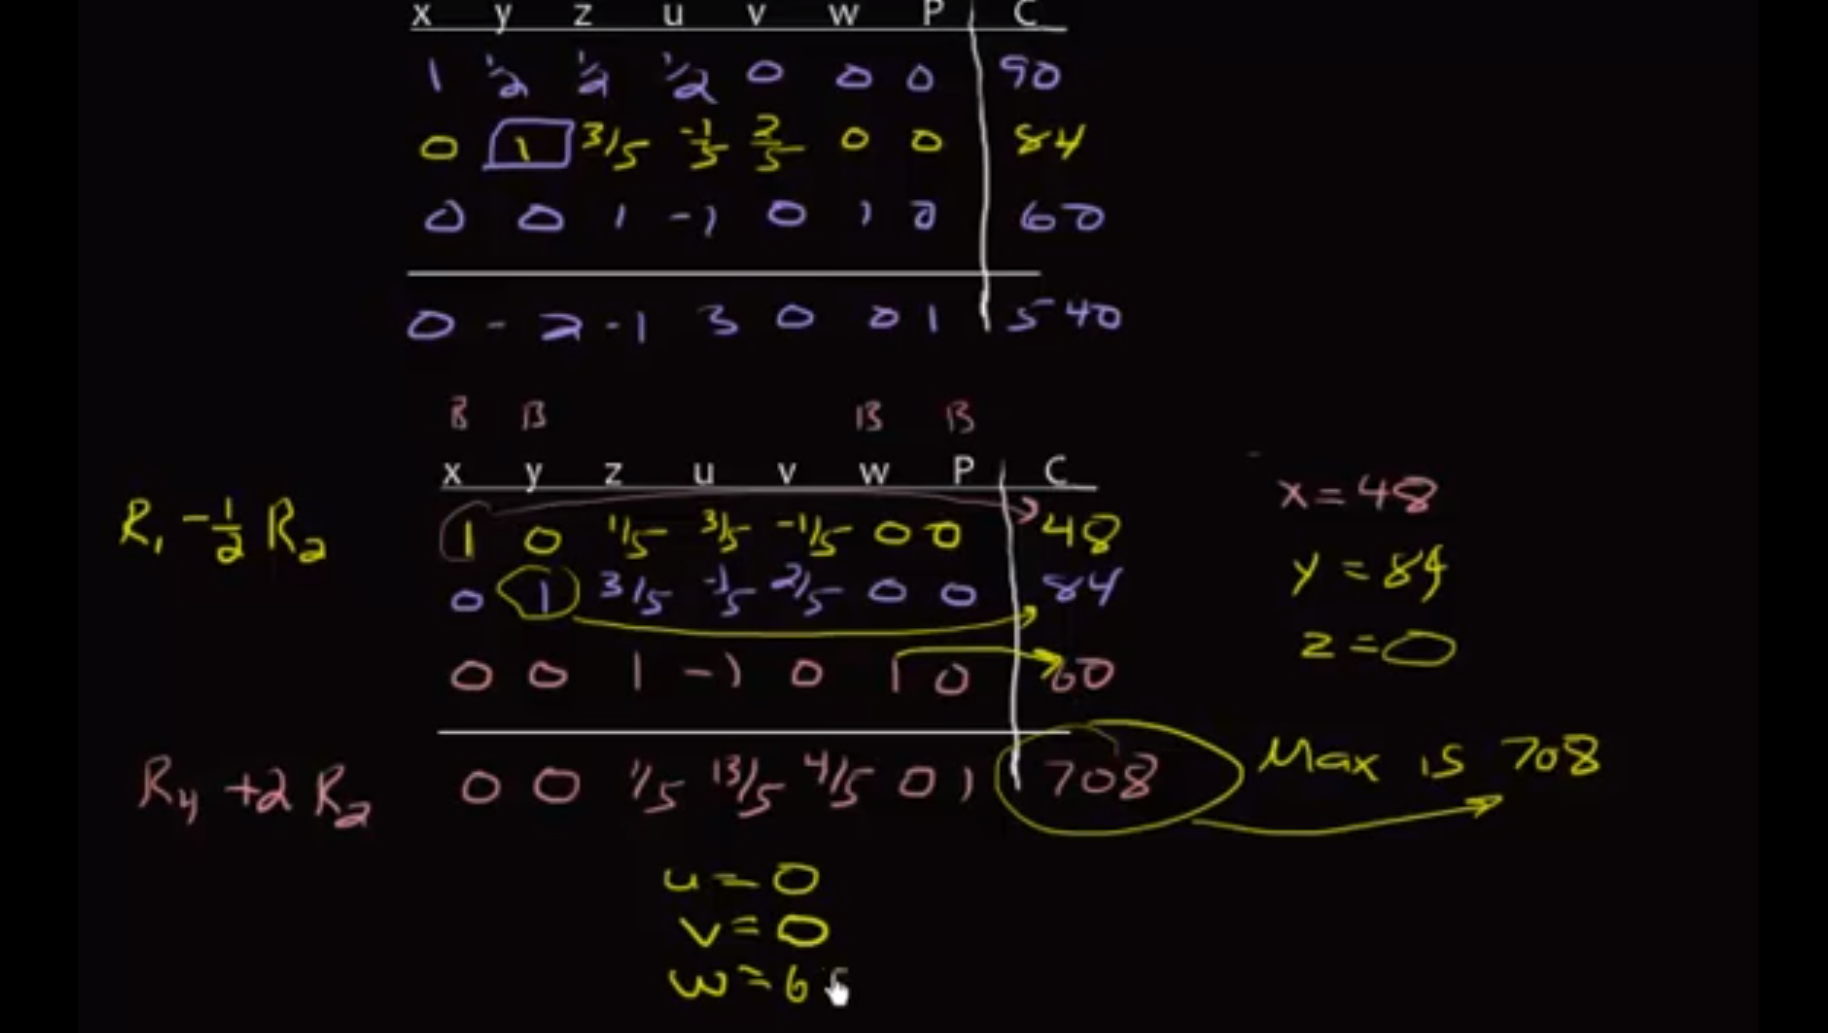 x y z u v w P C
1 1/2 1/2 1/2 0 0 0 90
0 1 3/5 -1/5 2/5 0 0 84
0 0 1 -1 0 1 0 60
0 -2 -1 3 0 0 1 540
B B B B
x y z u v w P C
R1 -1/2 R2 1 0 1/5 3/5 -1/5 0 0 48
0 1 3/5 -1/5 2/5 0 0 84
0 0 1 -1 0 1 0 60
R4 +2 R2 0 0 1/5 13/5 4/5 0 1 708
x=48
y=84
z=0
Max is 708
u=0
v=0
w=6